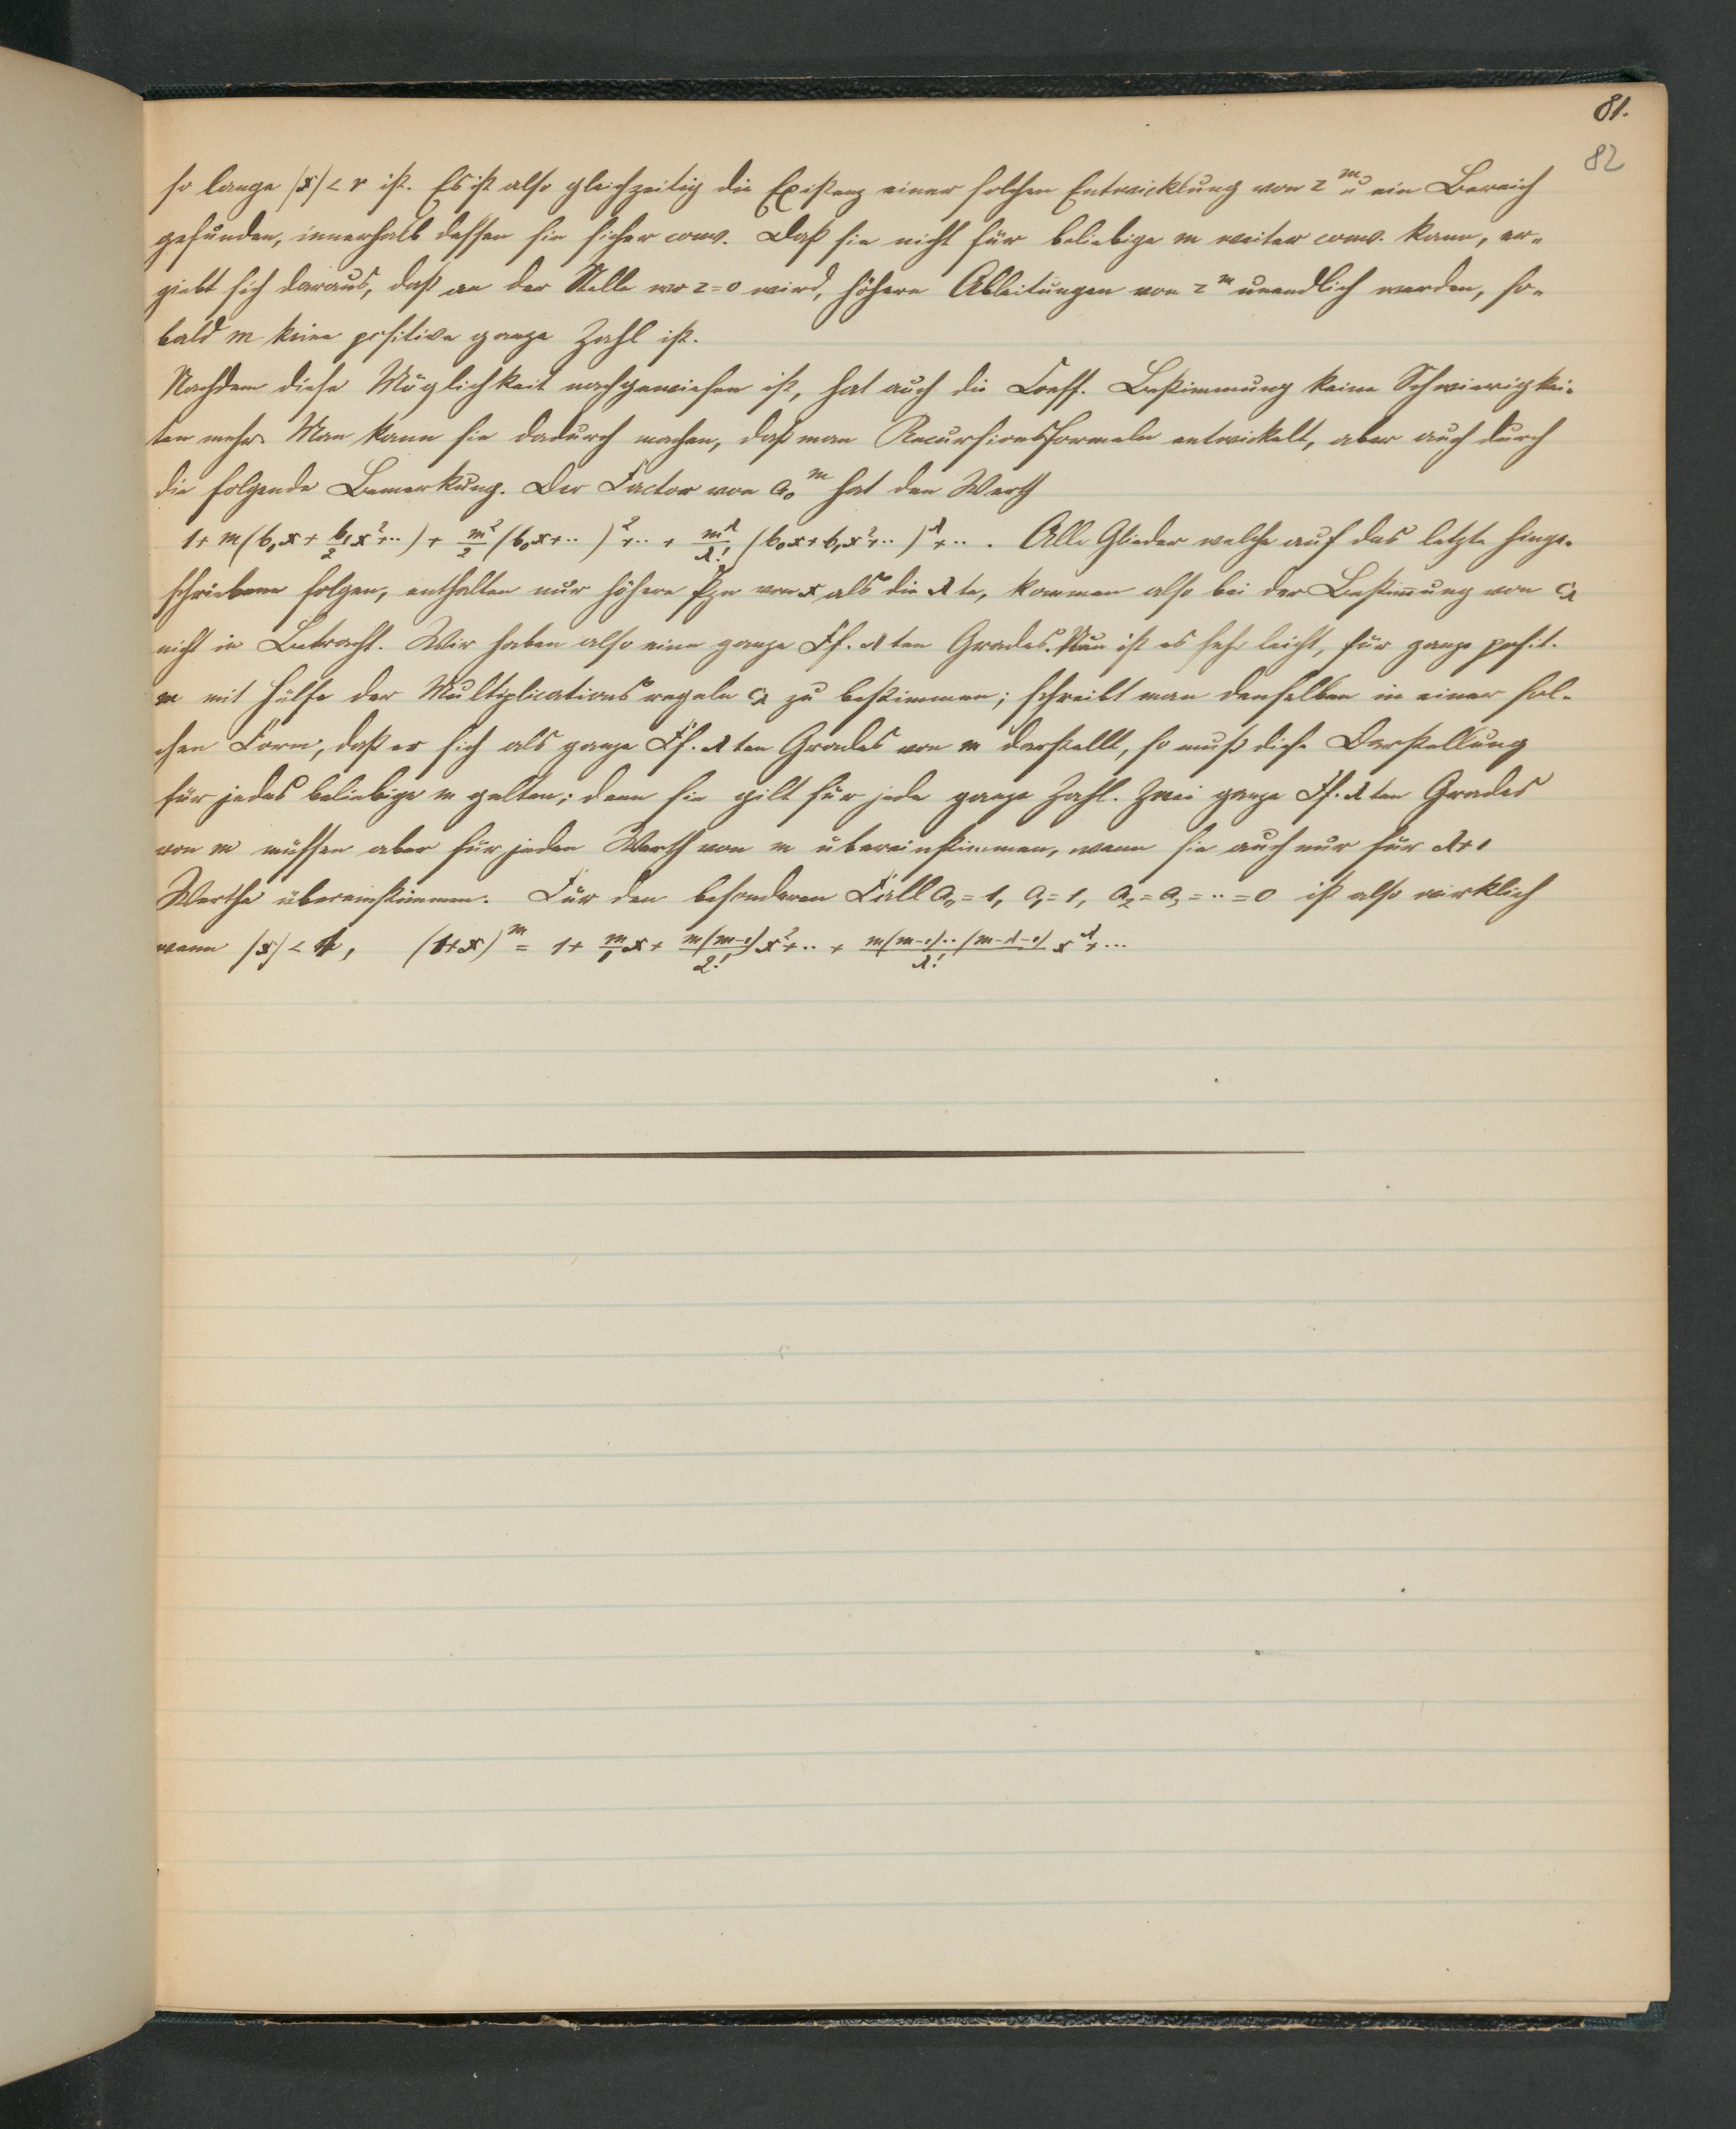 81.
82
so lange |x| < r ist. Es ist also gleichzeitig die Existenz einer solchen Entwicklung von z^m u ein Bereich
gefunden, innerhalb dessen sie sicher conv. Daß sie nicht für beliebige m weiter conv. kann, er-
giebt sich daraus, daß an der Stelle wo z=0 wird, höhere Ableitungen von z^m unendlich werden, so-
bald m keine positive ganze Zahl ist.
Nachdem diese Möglichkeit nachgewiesen ist, hat auch die Coeff. Bestimmung keine Schwierigkei-
ten mehr. Man kann sie dadurch machen, daß man Recursionsformeln entwickelt, aber auch durch
die folgende Bemerkung. Der Factor von a₀^m hat den Werth
1 + m(b₀x + b₁/2 x² + ··) + m²/2 (b₀x + ··)² + ·· + m^λ/λ! (b₀x + b₁x² + ··)^λ + ·· . Alle Glieder welche auf das letzte hinge-
schriebene folgen, enthalten nur höhere Pzn von x als die λte, kommen also bei der Bestim̅ung von c_λ
nicht in Betracht. Wir haben also eine ganze Ff. λten Grades. Nun ist es sehr leicht, für ganze posit.
m mit Hülfe der Multiplicationsregeln c_λ zu bestimmen; schreibt man denselben in einer sol-
chen Form, daß er sich als ganze Ff. λten Grades von m darstellt, so muß diese Darstellung
für jedes beliebige m gelten; denn sie gilt für jede ganze Zahl. Zwei ganze Ff. λten Grades
von m müssen aber für jeden Werth von m übereinstimmen, wenn sie auch nur für λ+1
Werthe übereinstimmen. Für den besonderen Fall a₀ = 1, a₁ = 1, a₂ = a₃ = ·· = 0 ist also wirklich
wenn |x| < 1, (1+x)^m = 1 + m/1 x + m(m-1)/2! x² + ·· + m(m-1)··(m-λ-1)/λ! x^λ + ···